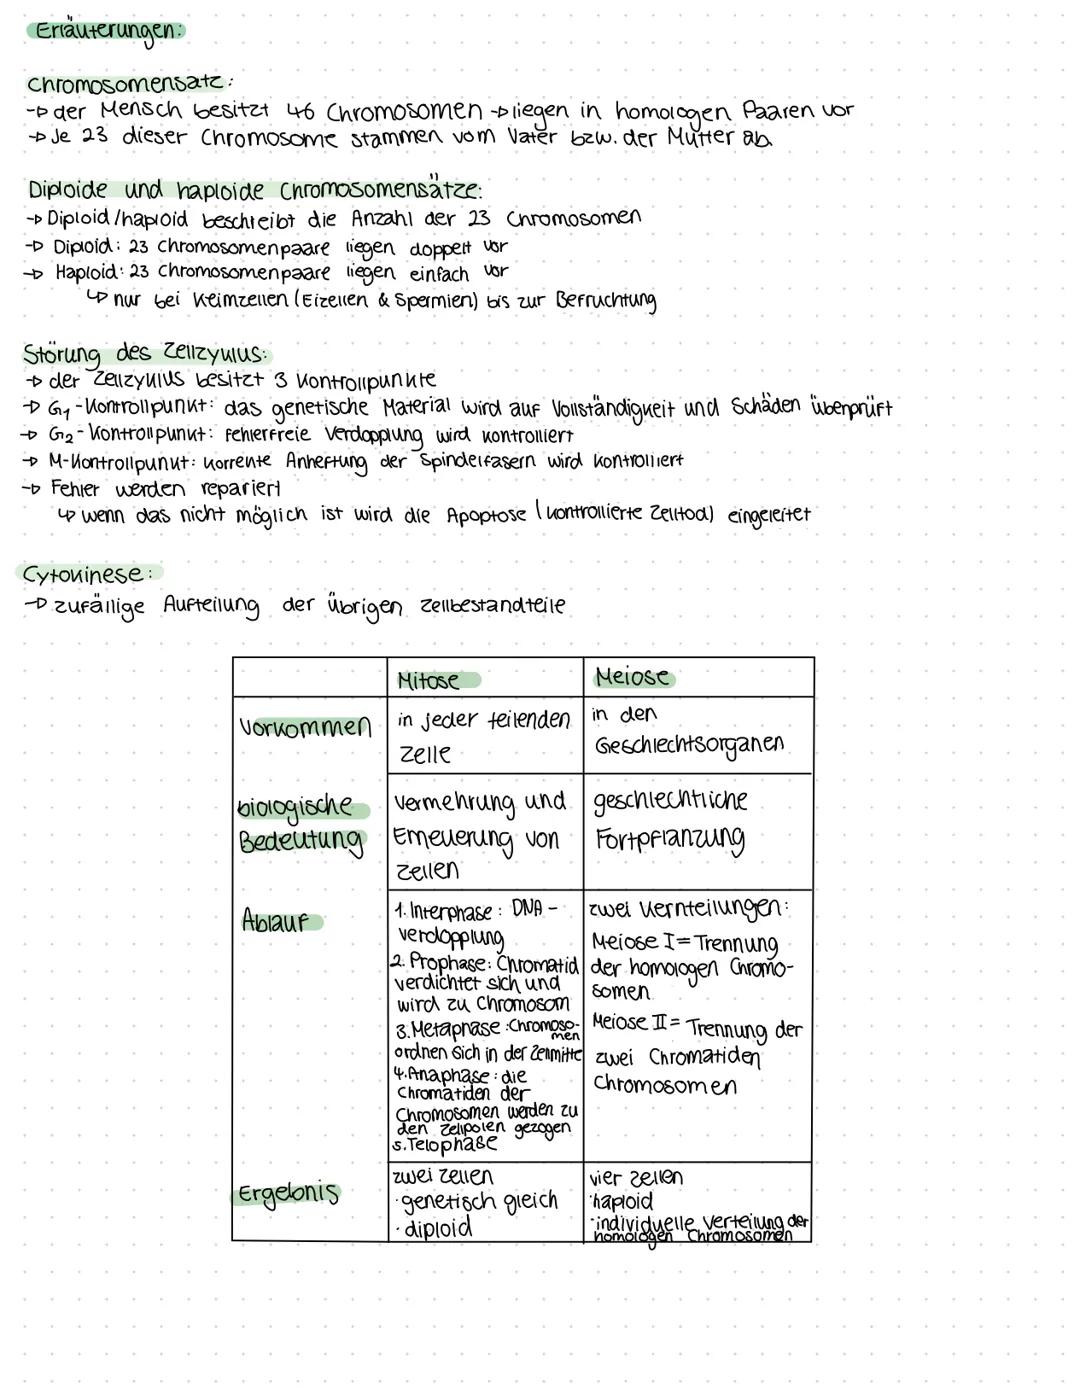 Erläuterungen:
Chromosomensatz:
→ der Mensch besitzt 46 Chromosomen → liegen in homologen Paaren vor
→ Je 23 dieser Chromosome stammen vom Vater bzw. der Mutter ab.
Diploide und haploide Chromosomensätze:
→ Diploid/haploid beschreibt die Anzahl der 23 Chromosomen
→ Diploid: 23 Chromosomenpaare liegen doppelt vor
→ Haploid: 23 Chromosomenpaare liegen einfach vor
↳ nur bei Keimzellen (Eizellen & Spermien) bis zur Befruchtung
Störung des Zellzyklus:
→ der Zellzyklus besitzt 3 Kontrollpunkte
→ G₁-Kontrollpunkt: das genetische Material wird auf Vollständigkeit und Schäden überprüft
→ G₂-Kontrollpunkt: fehlerfreie Verdopplung wird kontrolliert
→ M-Kontrollpunkt: korrekte Anheftung der Spindelfasern wird kontrolliert
→ Fehler werden repariert
↳ wenn das nicht möglich ist wird die Apoptose (kontrollierte Zelltod) eingeleitet
Cytokinese:
→ zufällige Aufteilung der übrigen Zellbestandteile
Mitose
Meiose
Vorkommen
in jeder teilenden
Zelle
in den
Geschlechtsorganen
biologische
Bedeutung
Vermehrung und
Erneuerung von
Zellen
geschlechtliche
Fortpflanzung
Ablauf
1. Interphase: DNA-
verdopplung
2. Prophase: Chromatid
verdichtet sich und
wird zu Chromosom
3. Metaphase: Chromoso-
men
ordnen sich in der Zellmitte
4. Anaphase: die
Chromatiden der
Chromosomen werden zu
den Zellpolen gezogen
5. Telophase
zwei Kernteilungen:
Meiose I = Trennung
der homologen Chromo-
somen
Meiose II = Trennung der
zwei Chromatiden
Chromosomen
Ergebnis
zwei Zellen
· genetisch gleich
· diploid
vier Zellen
· haploid
· individuelle Verteilung der
homologen Chromosomen